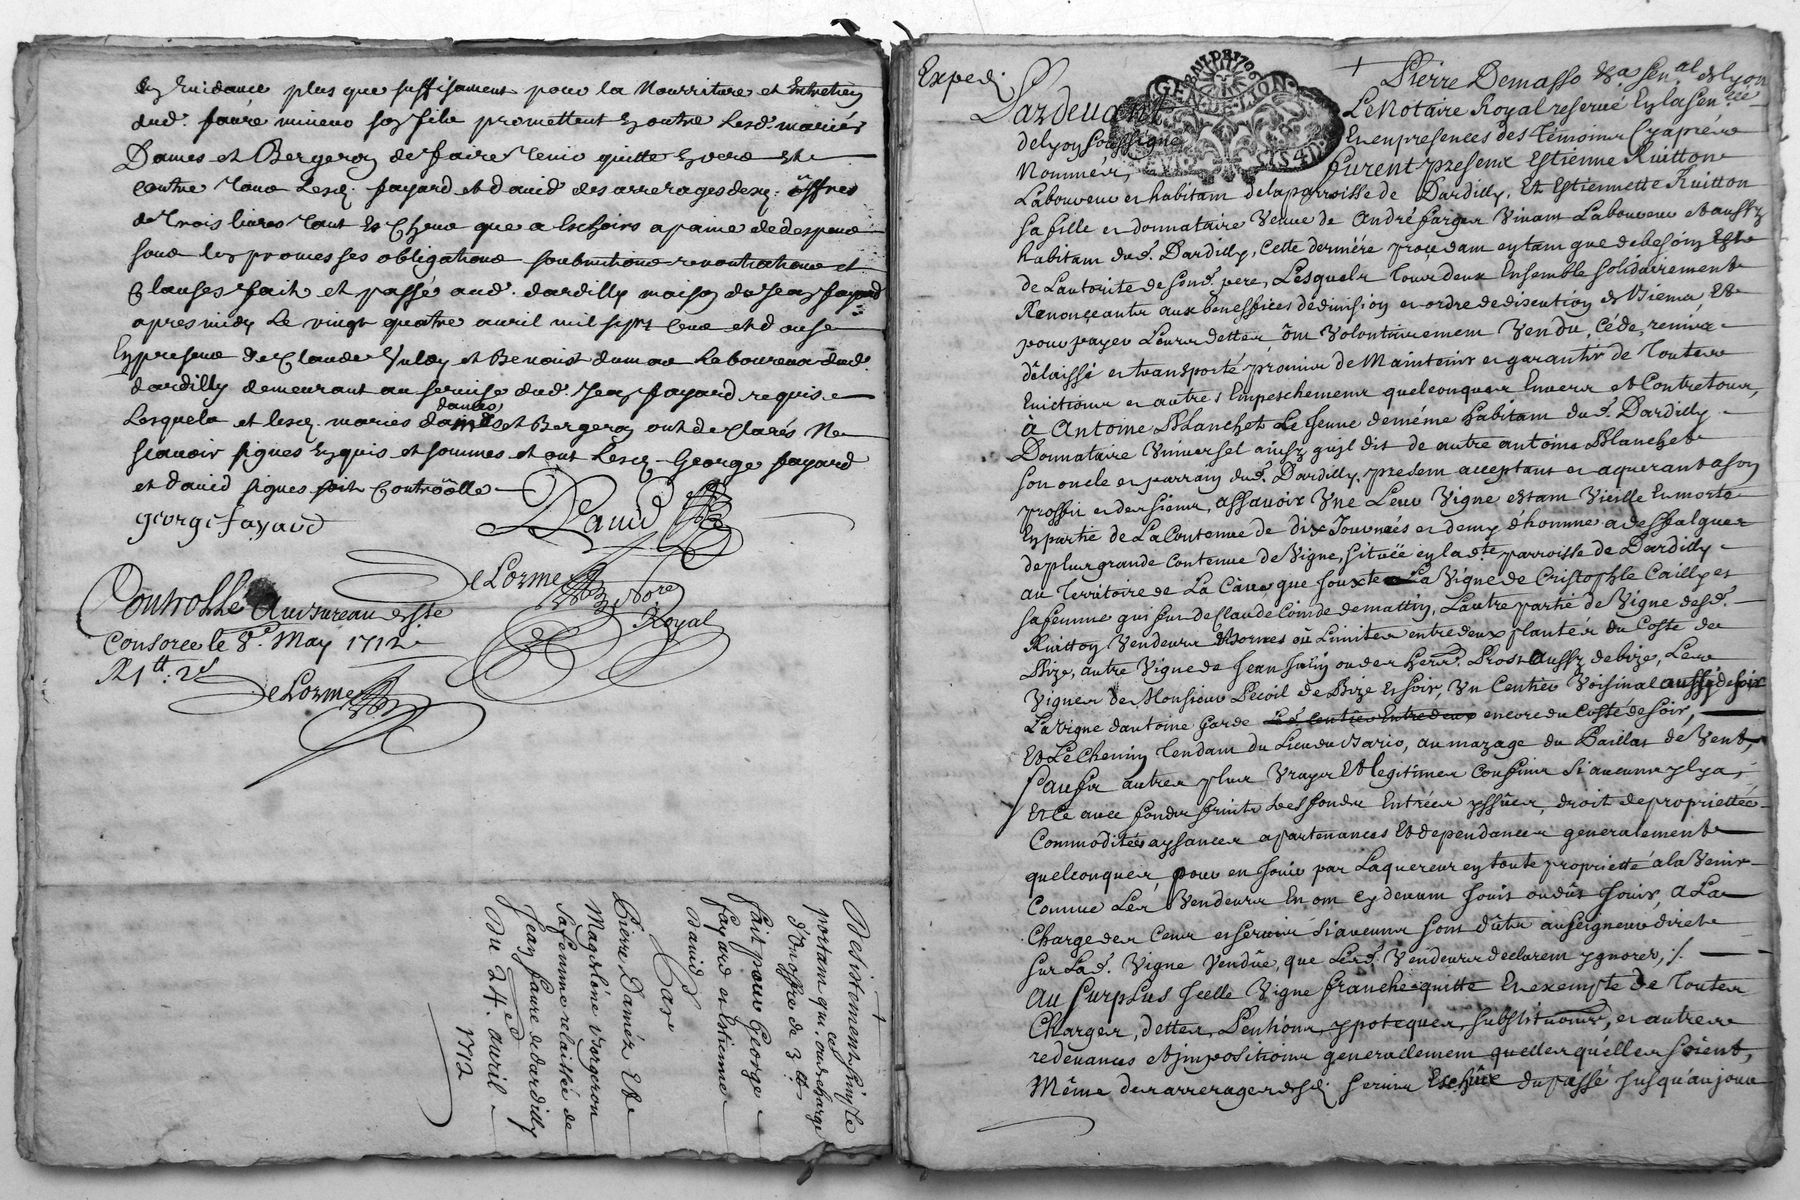 plus que suffisament pour la Nourriture et Entretien
dud. faure mineur son fils promettent En outre Lesd. mariés
Dames et Bergeron de faire tenir quitte
contre tous Lesd. fayard et david des arrerages desd. offres
de trois livres tant Escheus que a Eschoirs a paine de despens
sous les promesses obligations soubmitions renontiations et
Clauses fait et passé aud. dardilly maison de Jean fayard
apres midy Le vingt quatre avril mil sept cens et douse
En presence de Claude et Benoist Laboureux dud.
dardilly demeurant au service dud. Jean fayard requis
Lesquels et lesd. maries dames et Bergeron ont declarés Ne
scavoir signer Enquis et sommes et ont Lesd. George fayard
et david signes soit Controolle
george fayard
David
DeLorme
Nore
Royal
Controllé Au bureau
Consorce le 8e. May 1712
R 1tt. 2s
DeLorme
Desistement simple
portant quittance
d'Un offre de 3tt
fait pour George
fayard et Estienne
David
Par
Pierre Daméz Et
Magdeléne Borgeron
sa femme relaissée de
Jean faure de dardilly
Du 24e. avril
1712
Exped.
GEN. DE LYON
Pardevant Pierre Demasso
Le Notaire Royal reservé En la Sen.ée
de Lyon soussigné En en presences des témoins Cy aprés
Nommés, furent presens Estienne Ruitton
Laboureur et habitant de la parroisse de Dardilly, Et Estiennette Ruitton
sa fille et donnataire Veuve de André farges Vivant Laboureur et aussy
habitant dud. Dardilly, Cette derniére procedant en tant que de besoin Est
de L'autorité de sond. pere, Lesquels tous deux Ensemble solidairement
Renonçeants aux benefices de division et ordre de discution
pour payer Leurs dettes ont Volontairement Vendu, Cédé, remis
délaissé et transporté promis de Maintenir et garantir de toutes
Evictions et autres Empeschemens quelconques Envers et Contre tous,
à Antoine Blanchet Le Jeune de méme habitant dud. Dardilly
Donnataire Universel ainsy qu'jl dit de autre antoine Blanchet
son oncle et parrain dud. Dardilly, present acceptant et aquerant a son
proffit et des siens, assavoir Une Leur Vigne estant Vieille Et morte
En partie de La Contenue de dix Journées et demy d'homme a deffalquer
de plus grande Contenue de Vigne, située en la dte. parroisse de Dardilly
au Territoire de La que Jouxte La Vigne de Cristophle Cailly et
sa femme qui fut de Claude Cointe de mattin, L'autre partie de Vigne desd.
Ruitton Vendeurs Bornes ou Limites entre deux plantés du Coste de
Bize, autre Vigne de Jean ou des her. Prost Aussy de bize, Les
Vignes de Monsieur Pecoil de Bize Et soir, Un Centier Voisinal aussy de soir
La Vigne d'antoine Garde Led. Centier Entre deux encore du Costé de soir,
Et Le Chemin Tendant du Lieu du Bario, au mazage du Paillas de Vent,
Saufs autres plus Vrays Et legitimes Confins si aucuns y l'y a,
Et Ce avec fonds fruits des fonds Entrées yssues, droit de propriettée
Commodités aysances apartenances Et dependances generalement
quelconques, pour en Jouir par L'aquereur en toute proprietté a la Venir
Comme Les Vendeurs En ont cy devant Jouis ou dûs Jouir, a La
Charge des Cens et servis si aucuns sont dûts au seigneur direct
sur Lad. Vigne Vendûe, que Lesd. Vendeurs declarent ygnorer, /.
Au surplus Jcelle Vigne franche quitte Et exempte de toutes
Charges, dettes, Pentions, ypoteques, substitutions, et autres
redevances et jmpositions generallement quelles qu'elles soient,
Même des arrerages desd. servis Eschûe du passé jusqu'aujour